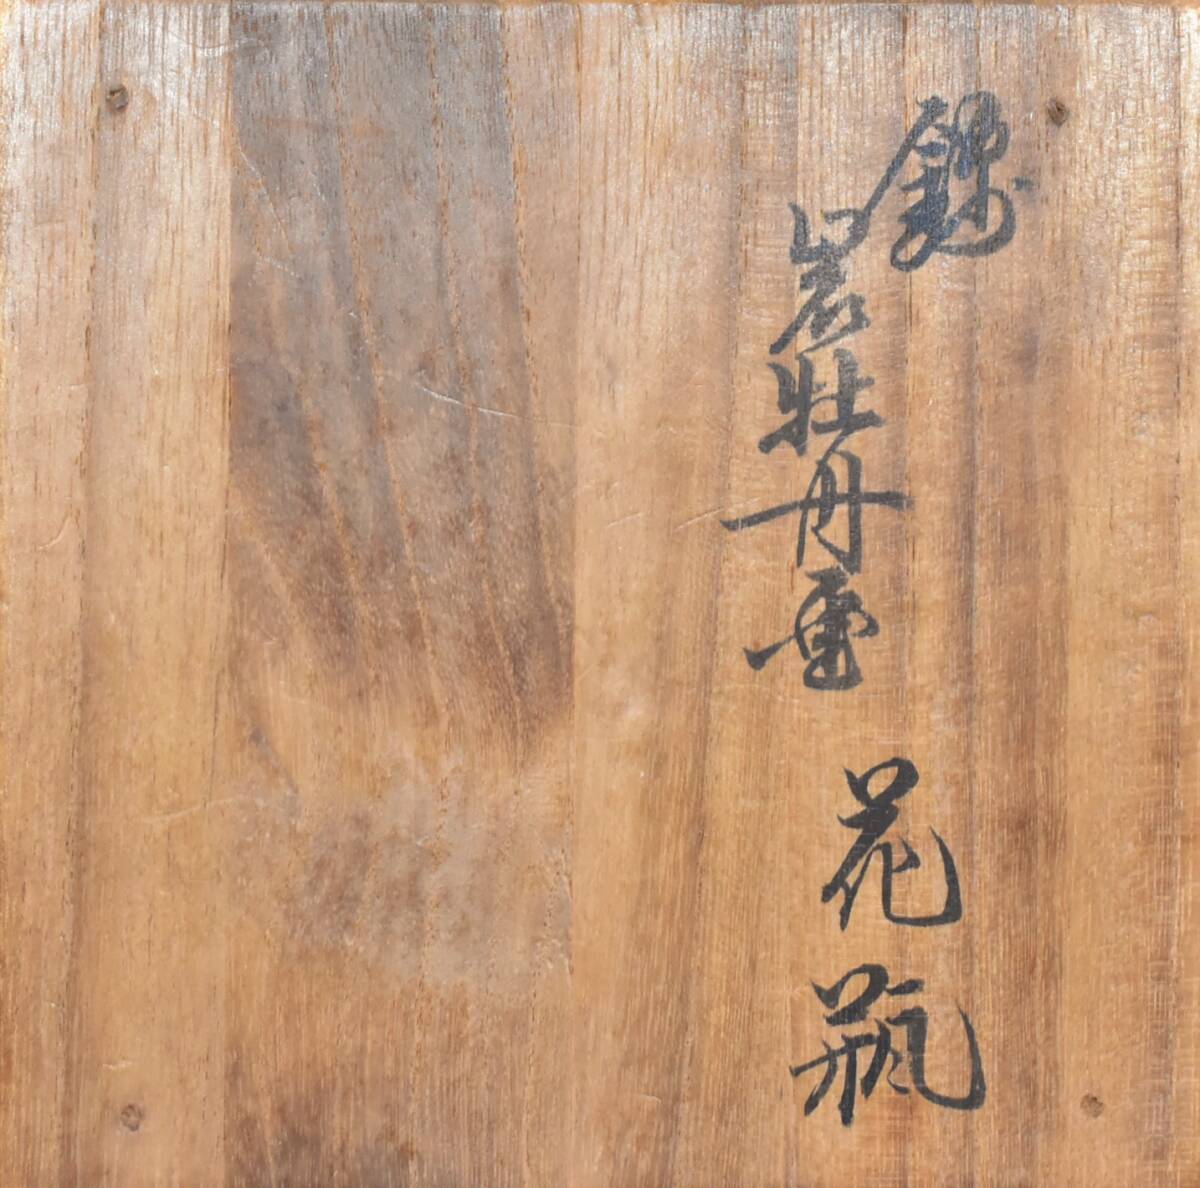 錦
岩牡丹画
花瓶